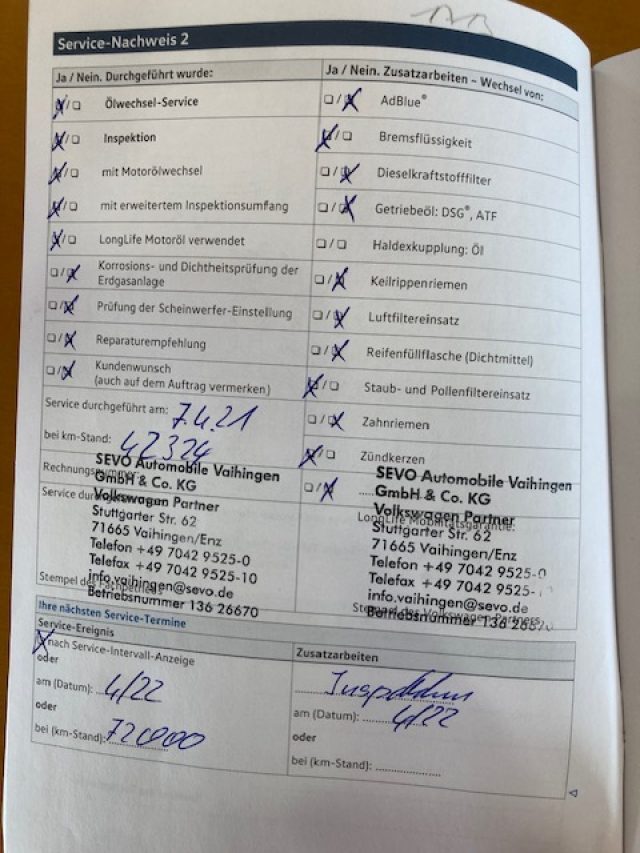 Service-Nachweis 2
Ja / Nein. Durchgeführt wurde:
Ölwechsel-Service
Inspektion
mit Motorölwechsel
mit erweitertem Inspektionsumfang
LongLife Motoröl verwendet
Korrosions- und Dichtheitsprüfung der
Erdgasanlage
Prüfung der Scheinwerfer-Einstellung
Reparaturempfehlung
Kundenwunsch
(auch auf dem Auftrag vermerken)
Service durchgeführt am: 7.4.21
bei km-Stand: 42324
Rechnungsnummer:
SEVO Automobile Vaihingen
GmbH & Co. KG
Volkswagen Partner
Stuttgarter Str. 62
71665 Vaihingen/Enz
Telefon +49 7042 9525-0
Telefax +49 7042 9525-10
info.vaihingen@sevo.de
Betriebsnummer 136 26670
Service durchgeführt
Stempel des Fachbetriebs
Ja / Nein. Zusatzarbeiten – Wechsel von:
AdBlue®
Bremsflüssigkeit
Dieselkraftstofffilter
Getriebeöl: DSG®, ATF
Haldexkupplung: Öl
Keilrippenriemen
Luftfiltereinsatz
Reifenfüllflasche (Dichtmittel)
Staub- und Pollenfiltereinsatz
Zahnriemen
Zündkerzen
SEVO Automobile Vaihingen
GmbH & Co. KG
Volkswagen Partner
LongLife Mobilitätsgarantie:
Stuttgarter Str. 62
71665 Vaihingen/Enz
Telefon +49 7042 9525-0
Telefax +49 7042 9525-
info.vaihingen@sevo.de
Betriebsnummer 136 26670
Stempel des Volkswagen Partners
Ihre nächsten Service-Termine
Service-Ereignis
nach Service-Intervall-Anzeige
oder
am (Datum): 4/22
oder
bei (km-Stand): 72000
Zusatzarbeiten
Inspektion
am (Datum): 4/22
oder
bei (km-Stand):